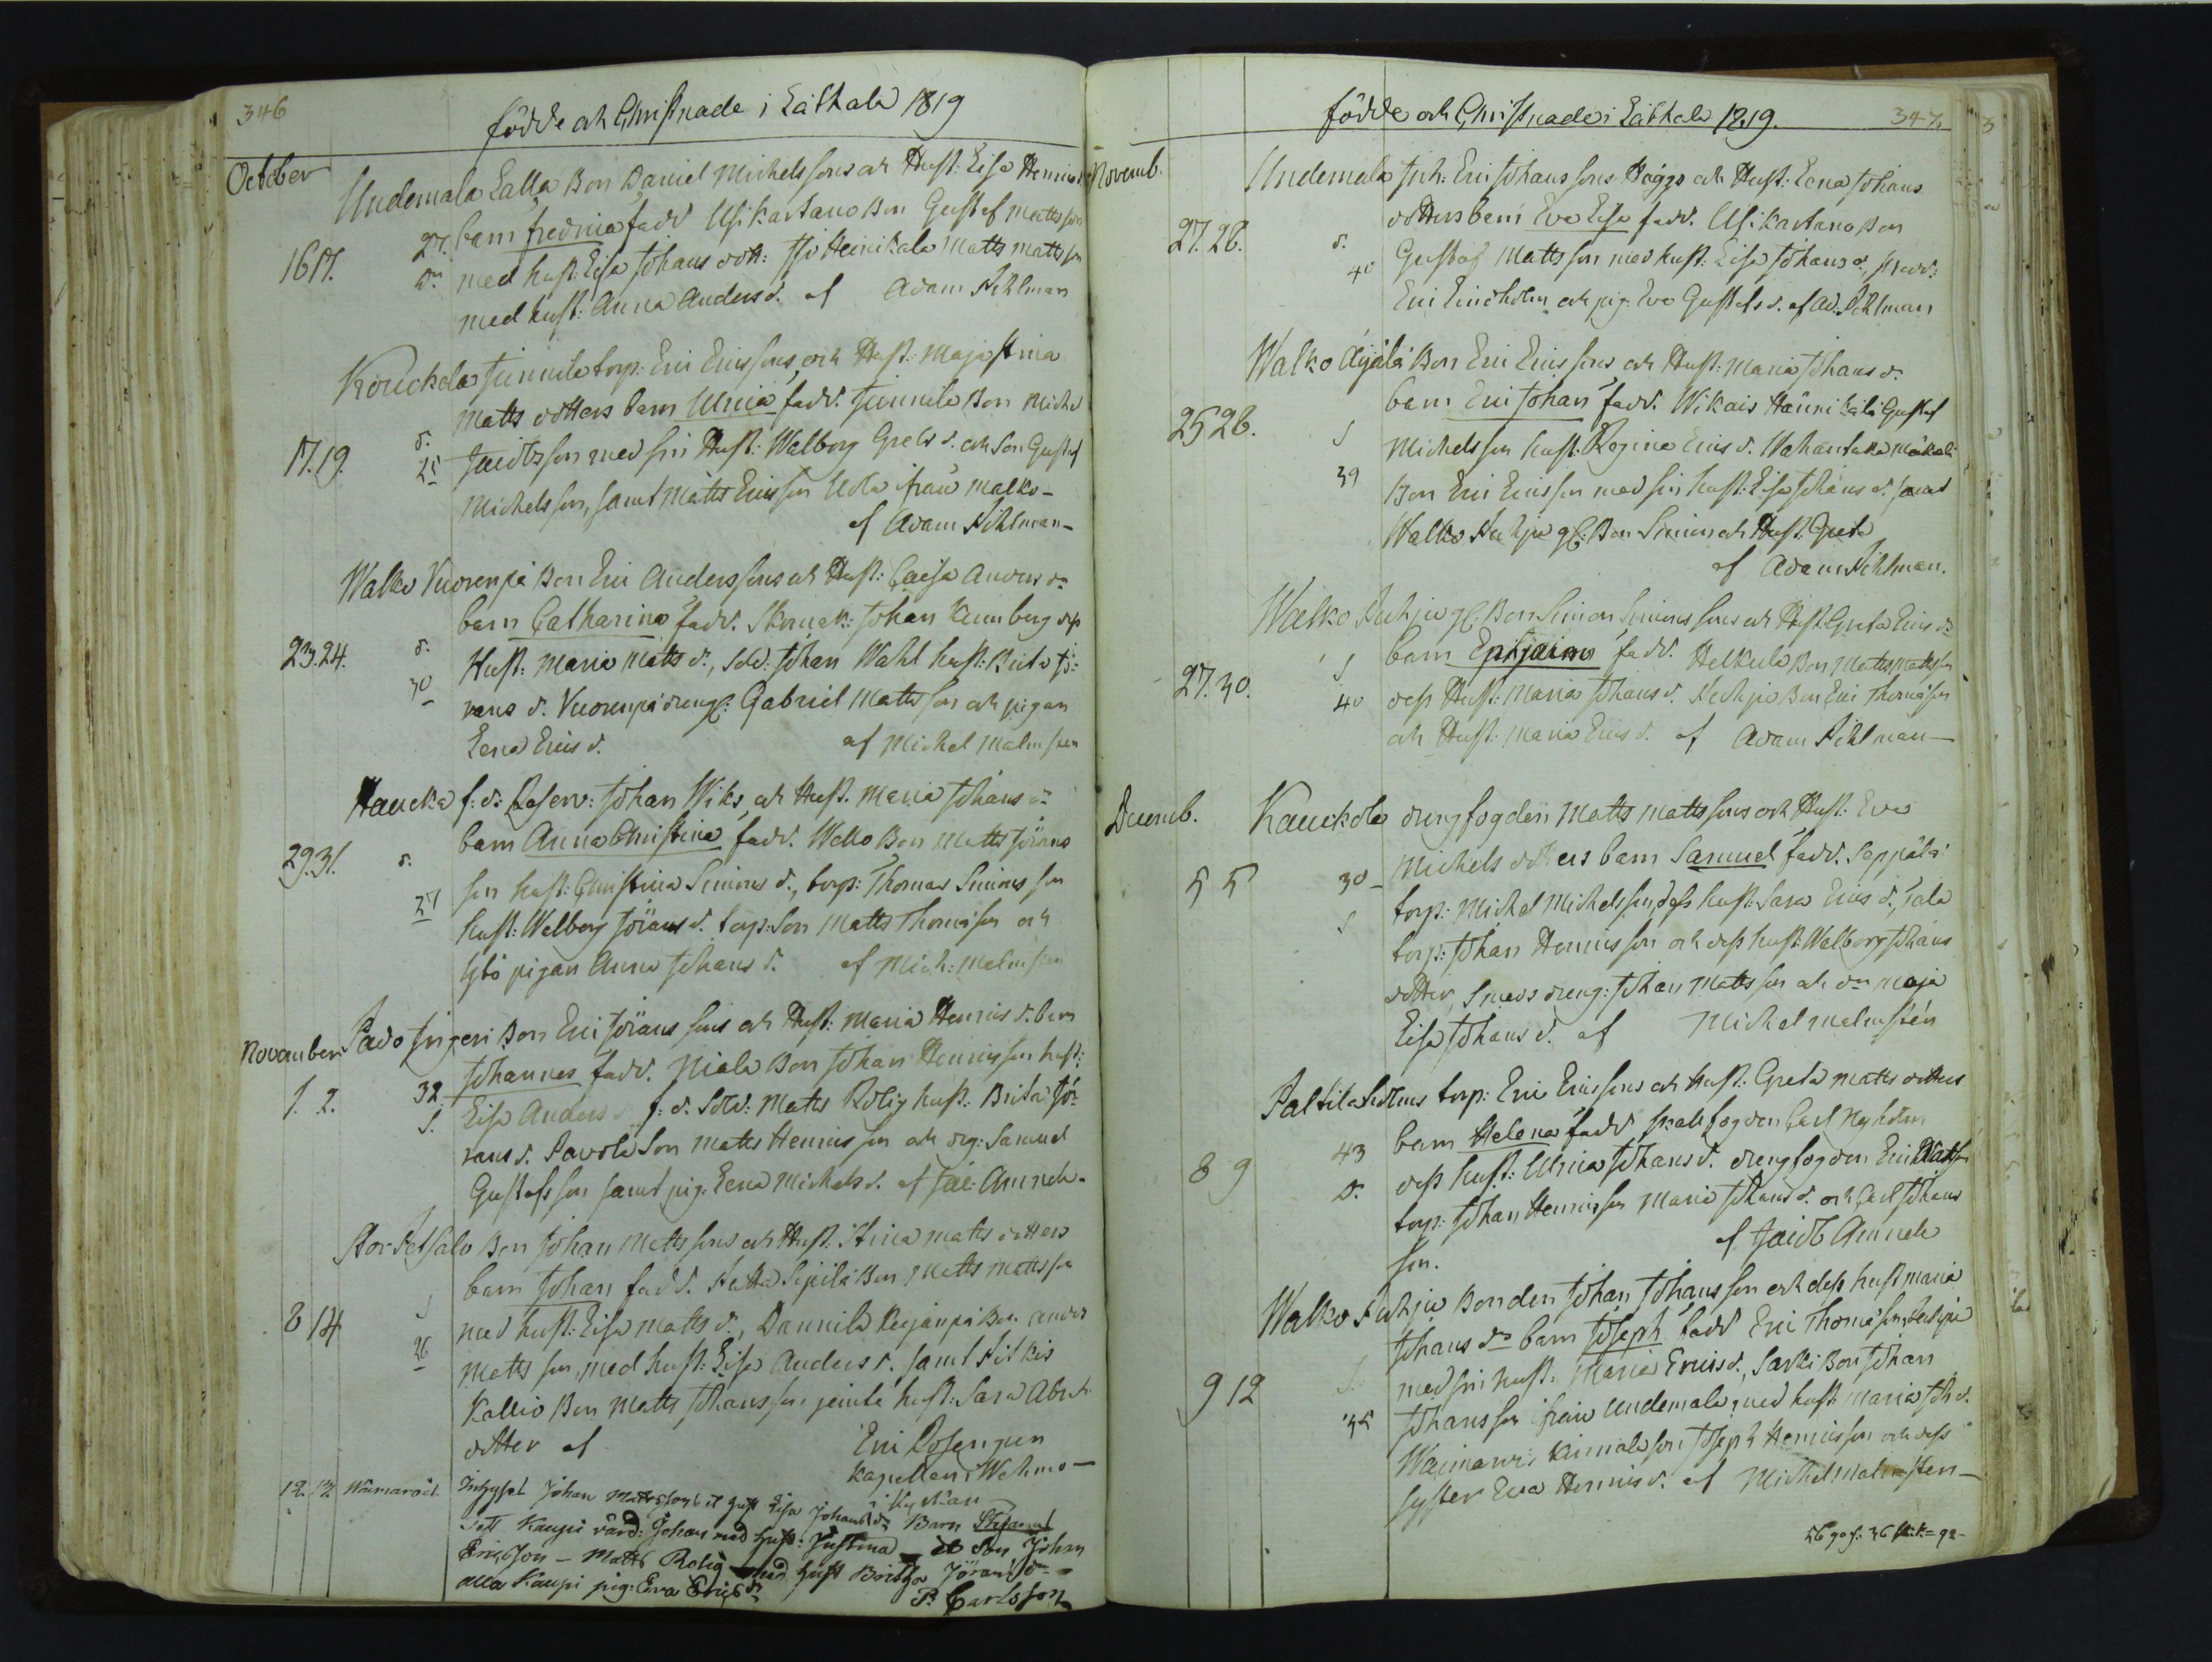 346
födde och Christnade i Låthala 1819
October
Undemala Lalla Bon Daniel Michelssons och Hust: Lisa Henrics
27. barn fredrica fadd Usikartano Bon Gustaf Mattsson
16 17. Dr med hust: Lisa Johans dott: Heinikala Matts Mattsson
med hust: Anna Anders d. af Adam Pihlman
Kouckela Junnila torp: Eric Ericssons och Hust: Maja Stina
Matts dotters barn Ulrica fadd. Junnila Bon Michel
17. 19. d. 25 Jacobsson med sin Hust: Walborg Grels d. och Son Gustaf
Michelsson, samt Matts Ericsson Uola ifrån Malko-
af Adam Pihlman-
Walko Vuorenpä Bon Eric Anderssons och Hust: Caisa Anders dr
barn Catharina fadd. Skomak: Johan Kumberg dess
23. 24. d. Hust: Maria Matts d., Sold: Johan Wahl hust: Brita Jö-
30 rans d. Vuorenpä dreng: Gabriel Mattsson och pigan
Lena Erics d. af Michel Malmsten
Haucka f: d: Reserv: Johan Wiks och Hust. Maria Johans dr
barn Anna Christina fadd. Wello Bon Matts Jörans
29. 31. d. son hust: Christina Simons d., torp: Thomas Simonsson
27 hust: Walborg Jörans d. torp: Son Matts Thomasson och
pigan Anna Johans d. af Mich: Malmsten
November Pado Bon Eric Jörans sons och Hust: Maria Henrics d. barn
32 Johannes fadd. Niala Bon Johan Henricsson hust:
1. 2. S. Lisa Anders d f: d. Sold: Matts Rolig hust: Brita Jö-
rans d. Pavola Son Matts Henricsson och drg: Samuel
Gustafsson samt pig: Lena Michels d. af Jac: Amnele.
Stor Petsalo Bon Johan Mattssons och Hust: Stina Matts dotters
barn Johan fadd. Sipilä Bon Matts Mattsson
8 14 S med hust: Lisa Matts d., Dannila Bon Anders
26 Mattsson, med hust: Lisa Anders d. samt Pitkis
Kallio Bon Matts Johansson jemte hust: Sara Abra
dotter af Eric Rosengren
Kapellan i Wehmo-
12. 13. Wäimaro Inhyses Johan Mattssons et hust Lisa Johans dr i Kyrkan Barn Stefanus
Test Kaupi vård: Johan med hust: Justina et Son Johan
Ericsson - Matts Rolig med hust Britha Jörans dr
alla Kaupi pig: Eva Erics dr P. Carlsson
födde och Christnade i Låthala 1819. 347.
Novemb. Undemala Inh: Eric Johanssons Häggo och Hust: Lena Johans
dotters barn Eva Lisa fadd. Usikartano Bon
27. 28. d. Gustaf Mattsson med hust: Lisa Johans d.,
40 Eric Lindholm och pig: Eva Gustafs d. af Ad: Pihlman
Walko Äijälä Bon Eric Ericssons och Hust: Maria Johans dr
barn Eric Johan fadd. Wikais Hannikäli Gustaf
25 28. S Michelsson hust: Regina Erics d. Wahantaka Mäkelä
39 Bon Eric Ericsson med sin hust: Lisa Johans d. samt
Walko Puhjo Bon Simon och Hust: Greta
af Adam Pihlman.
Walko Puhjo Bon Simon Simonssons och Hust: Greta Erics dr
barn Ephraim fadd. Helkula Bon Matts Mattsson
27. 30. S 40 dess Hust: Maria Johans d. Puhjo Bon Eric Thomasson
och Hust: Maria Erics d. af Adam Pihlman-
Decemb. Kauckola drengfogden Matts Mattssons och Hust: Eva
Michels dotters barn Samuel fadd. Seppälä
5 5 30- torp: Michel Michelsson, dess hust: Sara Erics d., Tala
S torp: Johan Henricsson och dess hust: Walborg Johans
dotter, Smeds dreng: Johan Mattsson och dr Maja
Lisa Johans d. af Michel Malmstén
Paltila Holms torp: Eric Ericssons och Hust: Greta Matts dotters
43 barn Helena fadd skalfogden Carl Nyholm
8 9 Dr dess hust: Ulrica Johans d. drengfogden Eric Mattsson
torp: Johan Henricsson Maria Johans d. och Carl Johans
son. af Jacob Amnele
Walko Puhjo Bonden Johan Johansson och dess hust Maria
Johans dr barn Joseph fadd Eric Thomasson Puhjo
9 12 S. med sin hust: Maria Erics d., Sarki Bon Johan
35 Johansson ifrån Undemala med hust Maria Joh d.
Wäimaro Kaimala son Joseph Henricsson och dess
syster Eva Henrics d. af Michel Malmsten-
56 36 = 92-